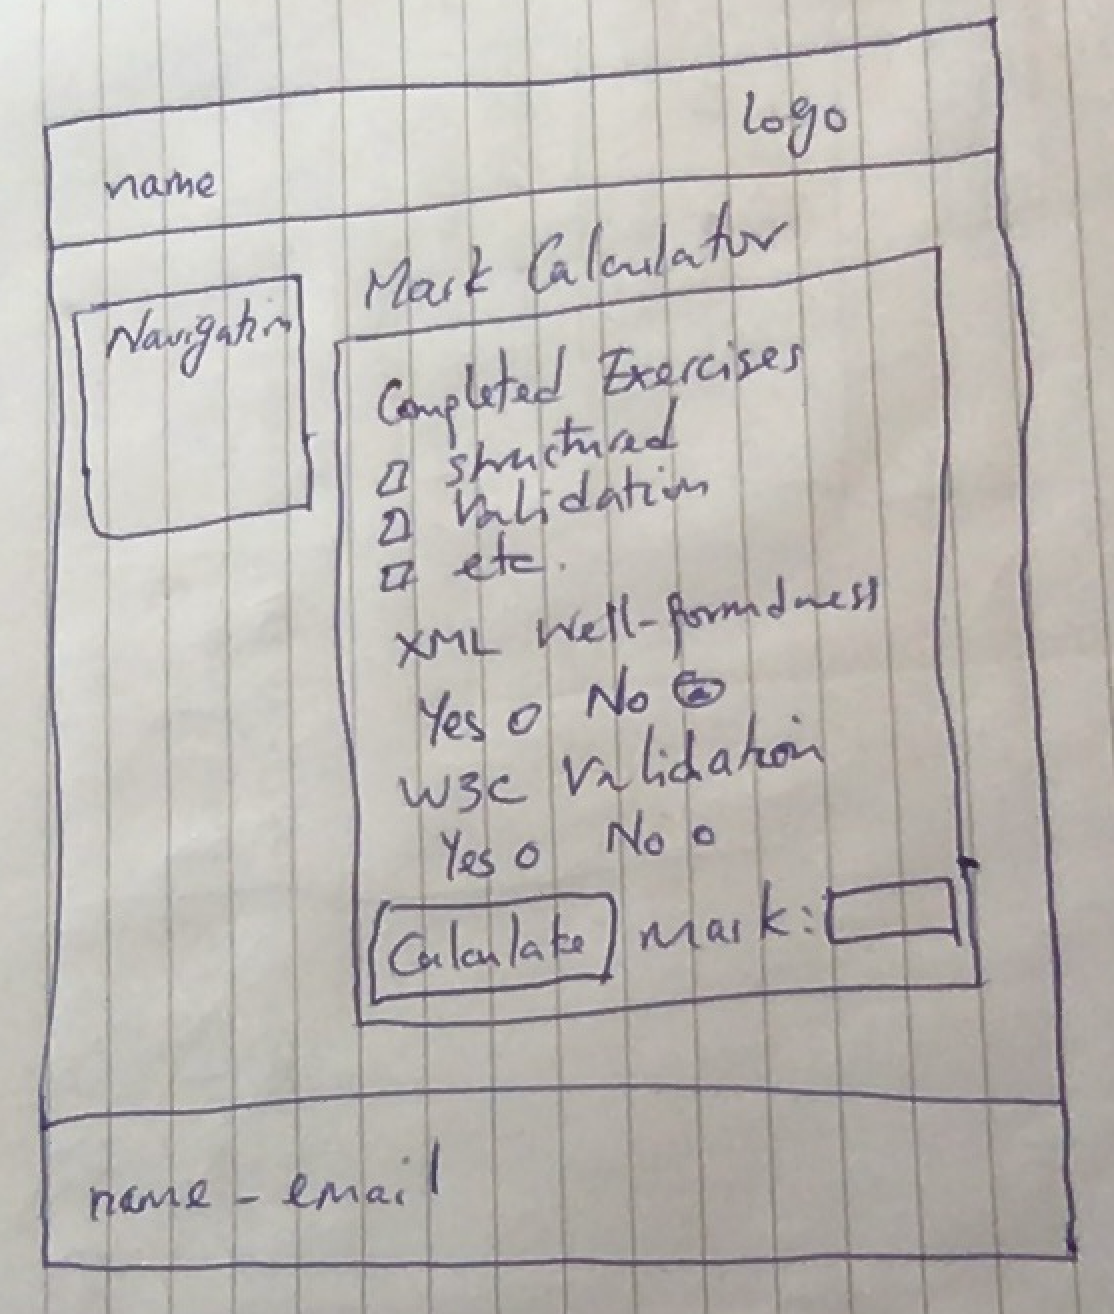 logo
name
Mark Calculator
Navigation
Completed Exercises
structured
Validation
etc.
XML Well-formdness
Yes No
W3C Validation
Yes No
Calculate mark:
name - email